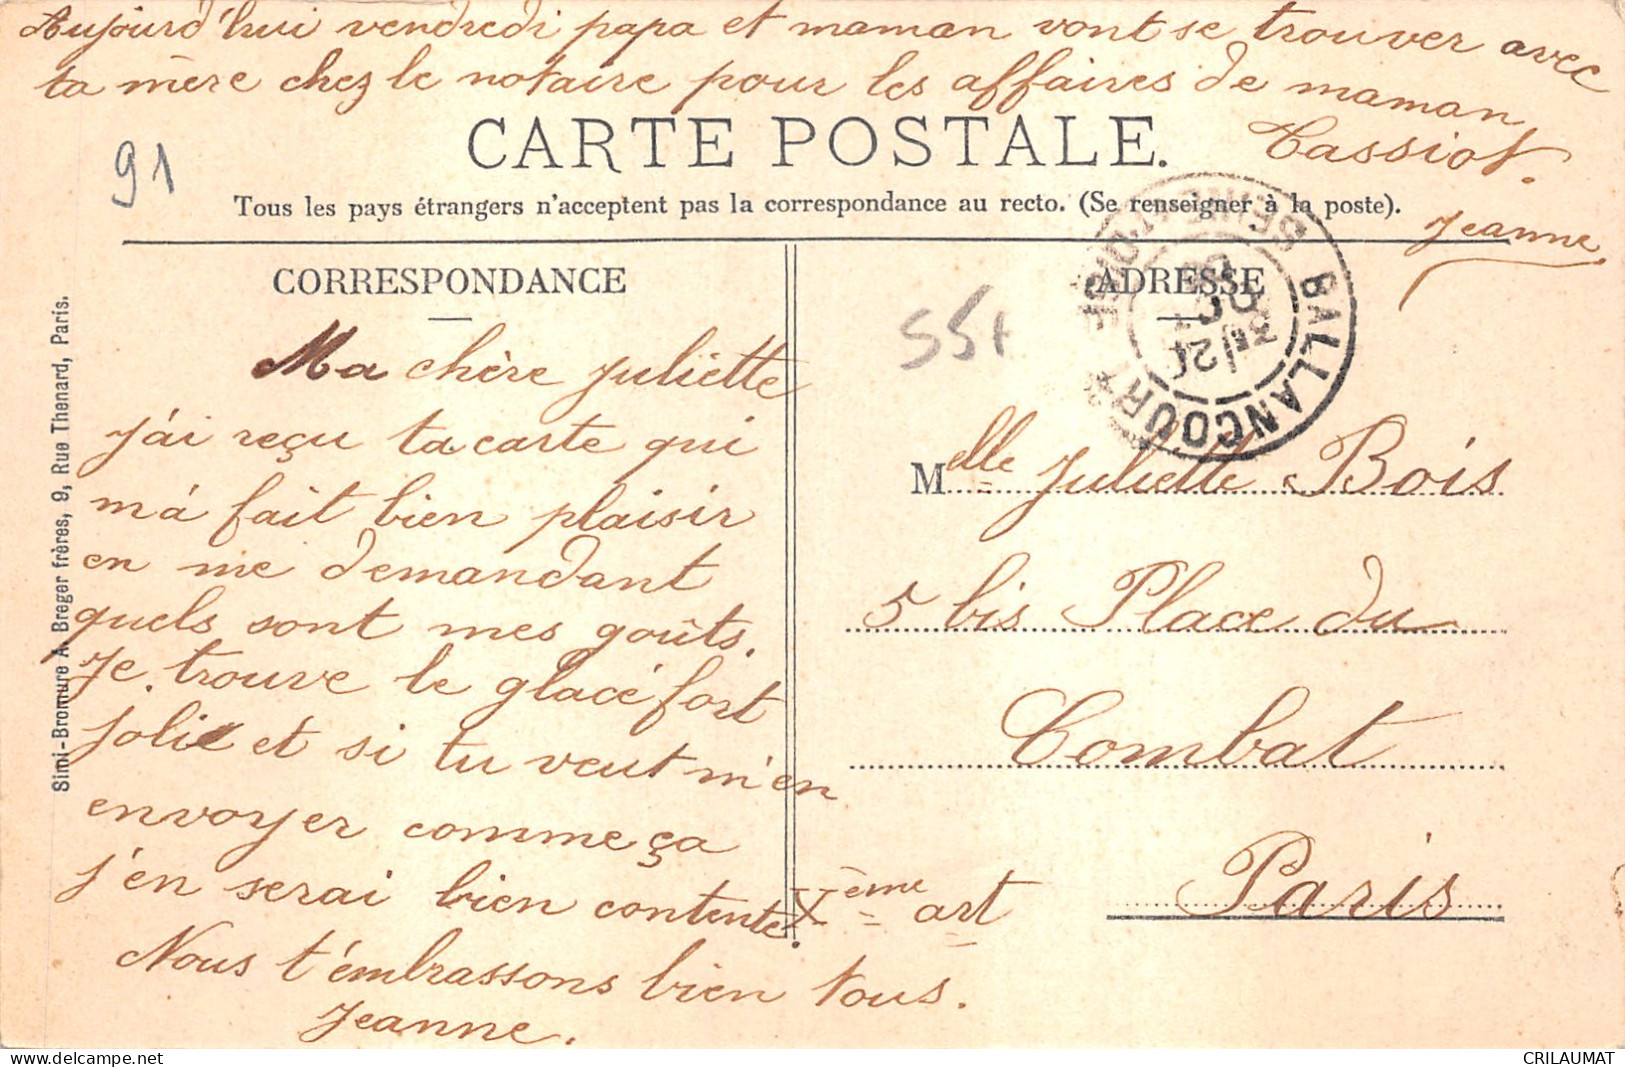 Aujourd'hui vendredi papa et maman vont se trouver avec
ta mère chez le notaire pour les affaires de maman
Cassiot.
Jeanne.
CARTE POSTALE.
91
Tous les pays étrangers n'acceptent pas la correspondance au recto. (Se renseigner à la poste).
CORRESPONDANCE
Ma chère Juliette
j'ai reçu ta carte qui
m'a fait bien plaisir
en me demandant
quels sont mes goûts.
Je trouve le glacé fort
joli et si tu veut m'en
envoyer comme ça
j'en serai bien contente.
Nous t'embrassons bien tous.
Jeanne.
Simi-Bromure A. Breger frères, 9, Rue Thenard, Paris.
ADRESSE
55+
BALLANCOURT
SEINE-ET-OISE
Melle Juliette Bois
5 bis Place du
Combat
Paris
Xème art
CRILAUMAT